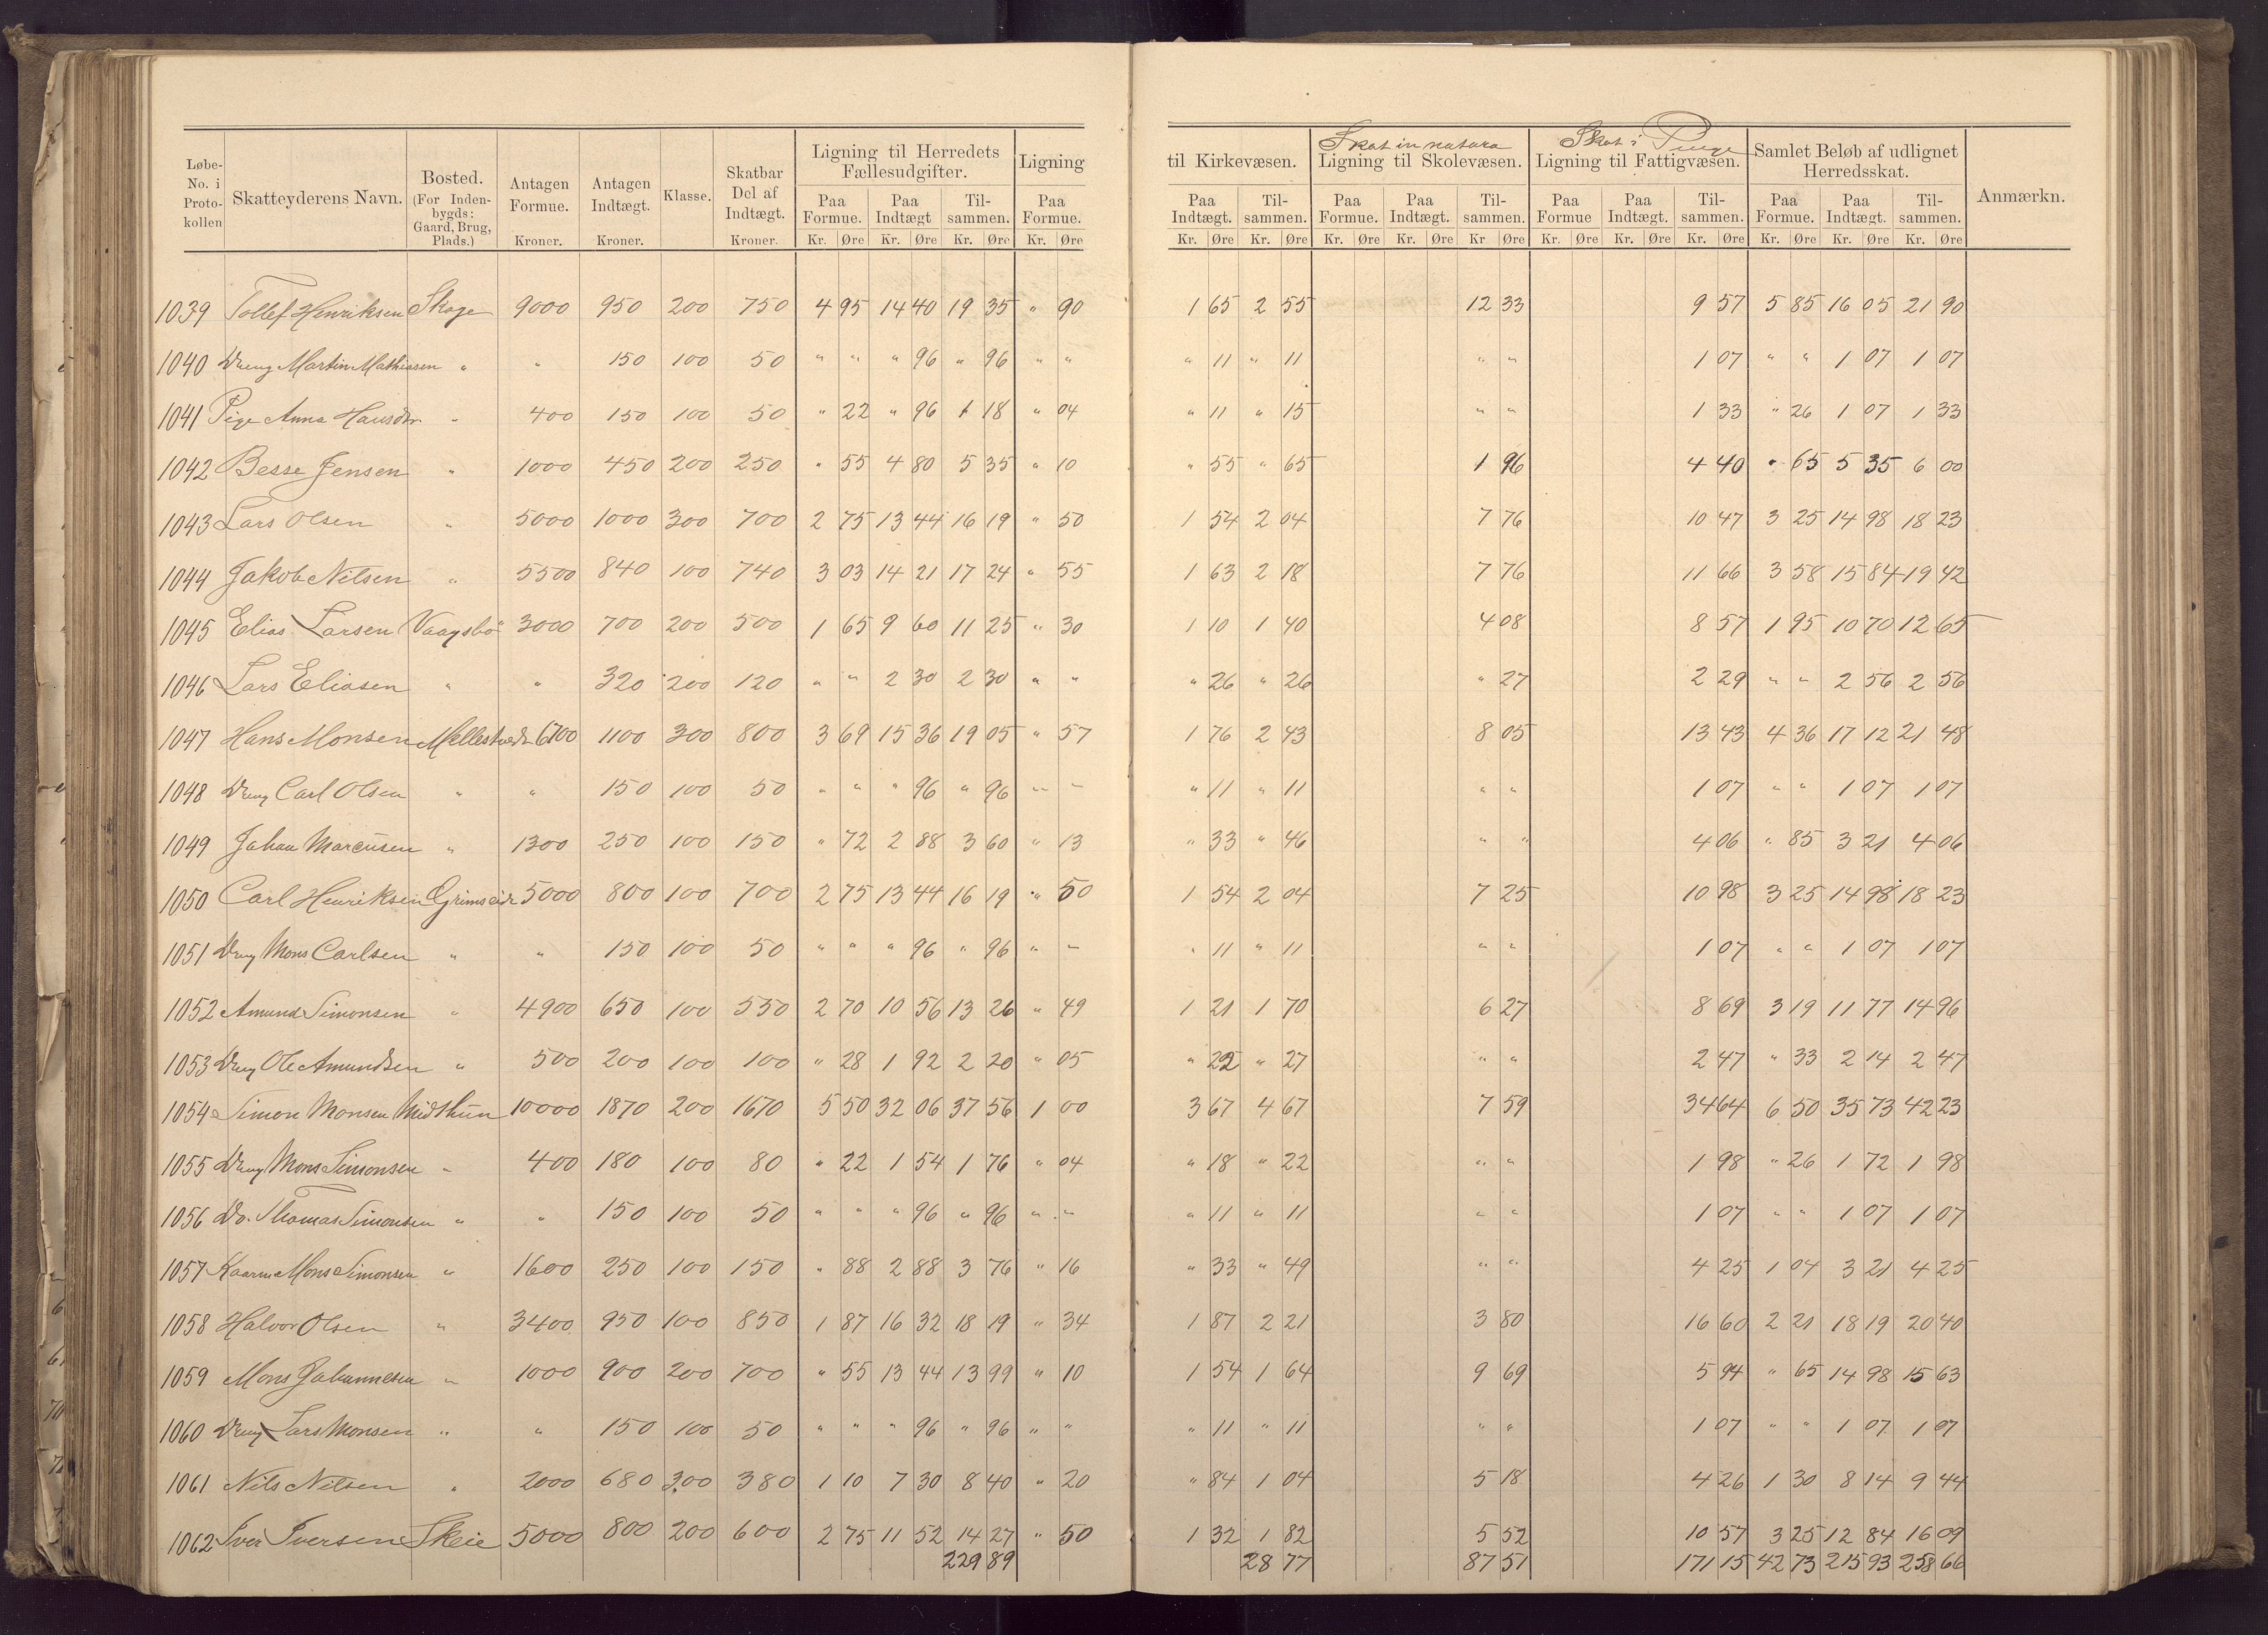 Løbe-No. i Proto-kollen | Skatteyderens Navn. | Bosted. (For Inden-bygds: Gaard, Brug, Plads.) | Antagen Formue. Kroner. | Antagen Indtægt. Kroner. | Klasse. | Skatbar Del af Indtægt. Kroner. | Ligning til Herredets Fællesudgifter. Paa Formue. Kr. Øre | Paa Indtægt Kr. Øre | Til-sammen. Kr. Øre | Ligning Paa Formue. Kr. Øre | til Kirkevæsen. Paa Indtægt. Kr. Øre | Til-sammen. Kr. Øre | Skat in natura Ligning til Skolevæsen. Paa Formue. Kr. Øre | Paa Indtægt. Kr. Øre | Til-sammen. Kr Øre | Skat i Penge Ligning til Fattigvæsen. Paa Formue Kr. Øre | Paa Indtægt. Kr. Øre | Til-sammen. Kr. Øre | Samlet Beløb af udlignet Herredsskat. Paa Formue. Kr. Øre | Paa Indtægt. Kr. Øre | Til-sammen. Kr. Øre | Anmærkn.
1039 Tollef Henriksen Skage 9000 950 200 750 4 95 14 40 19 35 " 90 1 65 2 55 12 33 9 57 5 85 16 05 21 90
1040 Dreng Martin Mathissen " " 150 100 50 " " " 96 " 96 " " " 11 " 11 " " 1 07 " " 1 07 1 07
1041 Pige Anna Hansdtr. " 400 150 100 50 " 22 " 96 1 18 " 04 " 11 " 15 " " 1 33 " 26 1 07 1 33
1042 Besse Jensen " 1000 450 200 250 " 55 4 80 5 35 " 10 " 55 " 65 1 96 4 40 " 65 5 35 6 00
1043 Lars Olsen " 5000 1000 300 700 2 75 13 44 16 19 " 50 1 54 2 04 7 76 10 47 3 25 14 98 18 23
1044 Jakob Nilsen " 5500 840 100 740 3 03 14 21 17 24 " 55 1 63 2 18 7 76 11 66 3 58 15 84 19 42
1045 Elias Larsen Vaagsbö 3000 700 200 500 1 65 9 60 11 25 " 30 1 10 1 40 4 08 8 57 1 95 10 70 12 65
1046 Lars Eliasen " " 320 200 120 " " 2 30 2 30 " " " 26 " 26 " 27 2 29 " " 2 56 2 56
1047 Hans Monsen 6700 1100 300 800 3 69 15 36 19 05 " 57 1 76 2 43 8 05 13 43 4 36 17 12 21 48
1048 Dreng Carl Olsen " " 150 100 50 " " " 96 " 96 " " " 11 " 11 " " 1 07 " " 1 07 1 07
1049 Johan Marcusen " 1300 250 100 150 " 72 2 88 3 60 " 13 " 33 " 46 " " 4 06 " 85 3 21 4 06
1050 Carl Henriksen Grimseidr 5000 800 100 700 2 75 13 44 16 19 " 50 1 54 2 04 7 25 10 98 3 25 14 98 18 23
1051 Dreng Mons Carlsen " " 150 100 50 " " " 96 " 96 " " " 11 " 11 " " 1 07 " " 1 07 1 07
1052 Amund Simonsen " 4900 650 100 550 2 70 10 56 13 26 " 49 1 21 1 70 6 27 8 69 3 19 11 77 14 96
1053 Dreng Ole Amundsen " 500 200 100 100 " 28 1 92 2 20 " 05 " 22 " 27 " " 2 47 " 33 2 14 2 47
1054 Simon Monsen Midthun 10000 1870 200 1670 5 50 32 06 37 56 1 00 3 67 4 67 7 59 34 64 6 50 35 73 42 23
1055 Dreng Mons Simonsen " 400 180 100 80 " 22 1 54 1 76 " 04 " 18 " 22 " " 1 98 " 26 1 72 1 98
1056 Do. Thomas Simonsen " " 150 100 50 " " " 96 " 96 " " " 11 " 11 " " 1 07 " " 1 07 1 07
1057 Kaarm. Mons Simonsen " 1600 250 100 150 " 88 2 88 3 76 " 16 " 33 " 49 " " 4 25 1 04 3 21 4 25
1058 Halvor Olsen " 3400 950 100 850 1 87 16 32 18 19 " 34 1 87 2 21 3 80 16 60 2 21 18 19 20 40
1059 Mons Johannesen " 1000 900 200 700 " 55 13 44 13 99 " 10 1 54 1 64 9 69 5 94 " 65 14 98 15 63
1060 Dreng Lars Monsen " " 150 100 50 " " " 96 " 96 " " " 11 " 11 " " 1 07 " " 1 07 1 07
1061 Nils Nilsen " 2000 680 300 380 1 10 7 30 8 40 " 20 " 84 1 04 5 18 4 26 1 30 8 14 9 44
1062 Iver Iversen Skeie 5000 800 200 600 2 75 11 52 14 27 " 50 1 32 1 82 5 52 10 57 3 25 12 84 16 09
229 89 28 77 87 51 171 15 42 73 215 93 258 66